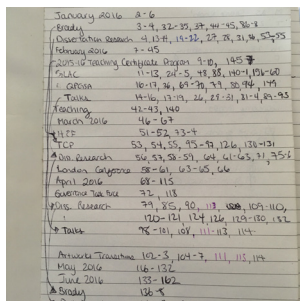 January 2016 2-6
Brady 3-9, 32-35, 37, 44-45, 86-8
Dissertation Research 4, 13-11, 19-32, 27, 28, 31, 36, 53, 55
February 2016 7-45
2015-16 Teaching Certificate Program 9-10, 145-6
SLAC 11-13, 24-5, 48, 88, 140-1, 156-60
GAPOSA 16-17, 36, 69-70, 79, 80, 94, 149
Talks 14-16, 17-19, 26, 29-31, 81-4, 89-93
Teaching 42-43, 140
March 2016 46-67
51-52, 73-4
TCP 53, 54, 55, 95-97, 126, 130-131
Diss. Research 56, 57, 58-59, 64, 61-63, 71, 75-6
London Conference 58-61, 63-65, 66
April 2016 68-115
72, 113
Diss. Research 79, 85, 90, 113, 109-110,
120-121, 124, 126, 129-130, 132
Talks 98-101, 108, 111-113, 114
Transitions 102-3, 104-7, 111, 113, 114
May 2016 116-132
June 2016 133-162
Brady 136-8